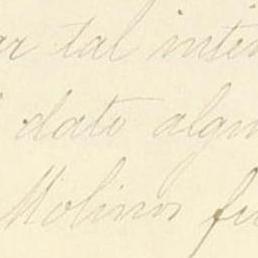 ar tal inten
dato algu
Molinos fu